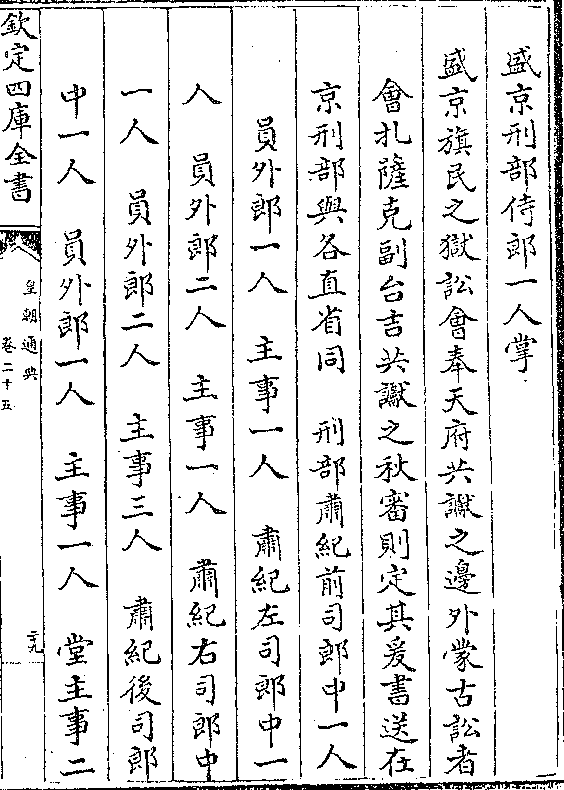 盛京刑部侍郎一人掌
盛京旗民之獄訟會奉天府共讞之邊外蒙古訟者
會扎薩克副台吉共讞之秋審則定其爰書送在
京刑部與各直省同　刑部肅紀前司郎中一人
員外郎一人　主事一人　肅紀左司郎中一
人　員外郎二人　主事一人　肅紀右司郎中
一人　員外郎二人　主事三人　肅紀後司郎
中一人　員外郎一人　主事一人　堂主事二
欽定四庫全書
皇朝通典
卷二十五
二十九